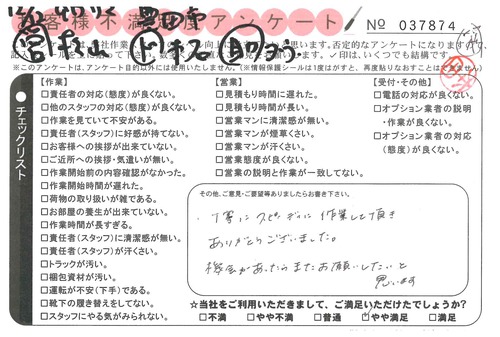 お客様不満足度アンケート
No 037874
チェックリスト
【作業】
□責任者の対応(態度)が良くない。
□他のスタッフの対応(態度)が良くない。
□作業を見ていて不安がある。
□責任者(スタッフ)に好感が持てない。
□お客様への挨拶が出来ていない。
□ご近所への挨拶・気遣いが無い。
□作業開始前の内容確認がなかった。
□作業開始時間が遅れた。
□荷物の取り扱いが雑である。
□お部屋の養生が出来ていない。
□作業時間が長すぎる。
□責任者(スタッフ)に清潔感が無い。
□責任者(スタッフ)が汗くさい。
□トラックが汚い。
□梱包資材が汚い。
□運転が不安(下手)である。
□靴下の履き替えをしてない。
□スタッフにやる気がみられない。
【営業】
□見積もり時間に遅れた。
□見積もり時間が長い。
□営業マンに清潔感が無い。
□営業マンが煙草くさい。
□営業マンが汗くさい。
□営業態度が良くない。
□営業の説明と作業が一致してない。
【受付・その他】
□電話の対応が良くない。
□オプション業者の説明
・作業が良くない。
□オプション業者の対応
(態度)が良くない。
その他、ご意見・ご要望等ありましたらお書き下さい。
丁寧にスピーディに作業して頂き
ありがとうございました。
機会があったらまたお願いしたいと
思います
☆当社をご利用いただきまして、ご満足いただけたでしょうか?
□不満 □やや不満 □普通 □やや満足 □満足